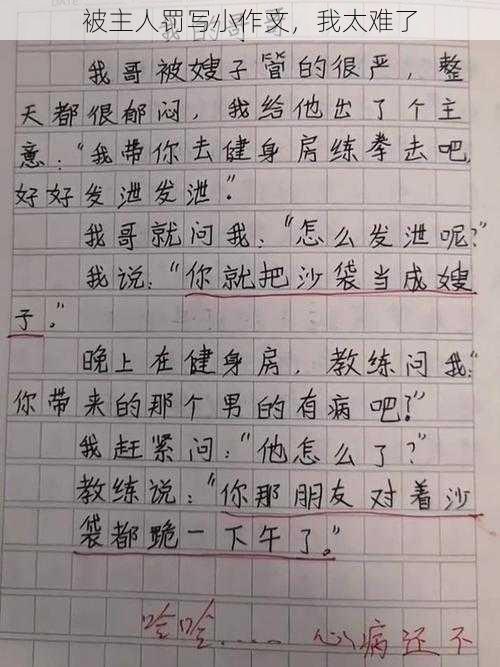 被主人罚写小作文，我太难了
我的哥哥
我哥被嫂子管的很严，整
天都很郁闷，我给他出了个主
意：“我带你去健身房练拳去吧，
好好发泄发泄。”
我哥就问我：“怎么发泄呢？”
我说：“你就把沙袋当成嫂
子。”
晚上在健身房，教练问我：“
你带来的那个男的有病吧？”
我赶紧问：“他怎么了？”
教练说：“你那朋友对着沙
袋都跪一下午了。”
哈哈....心病还不